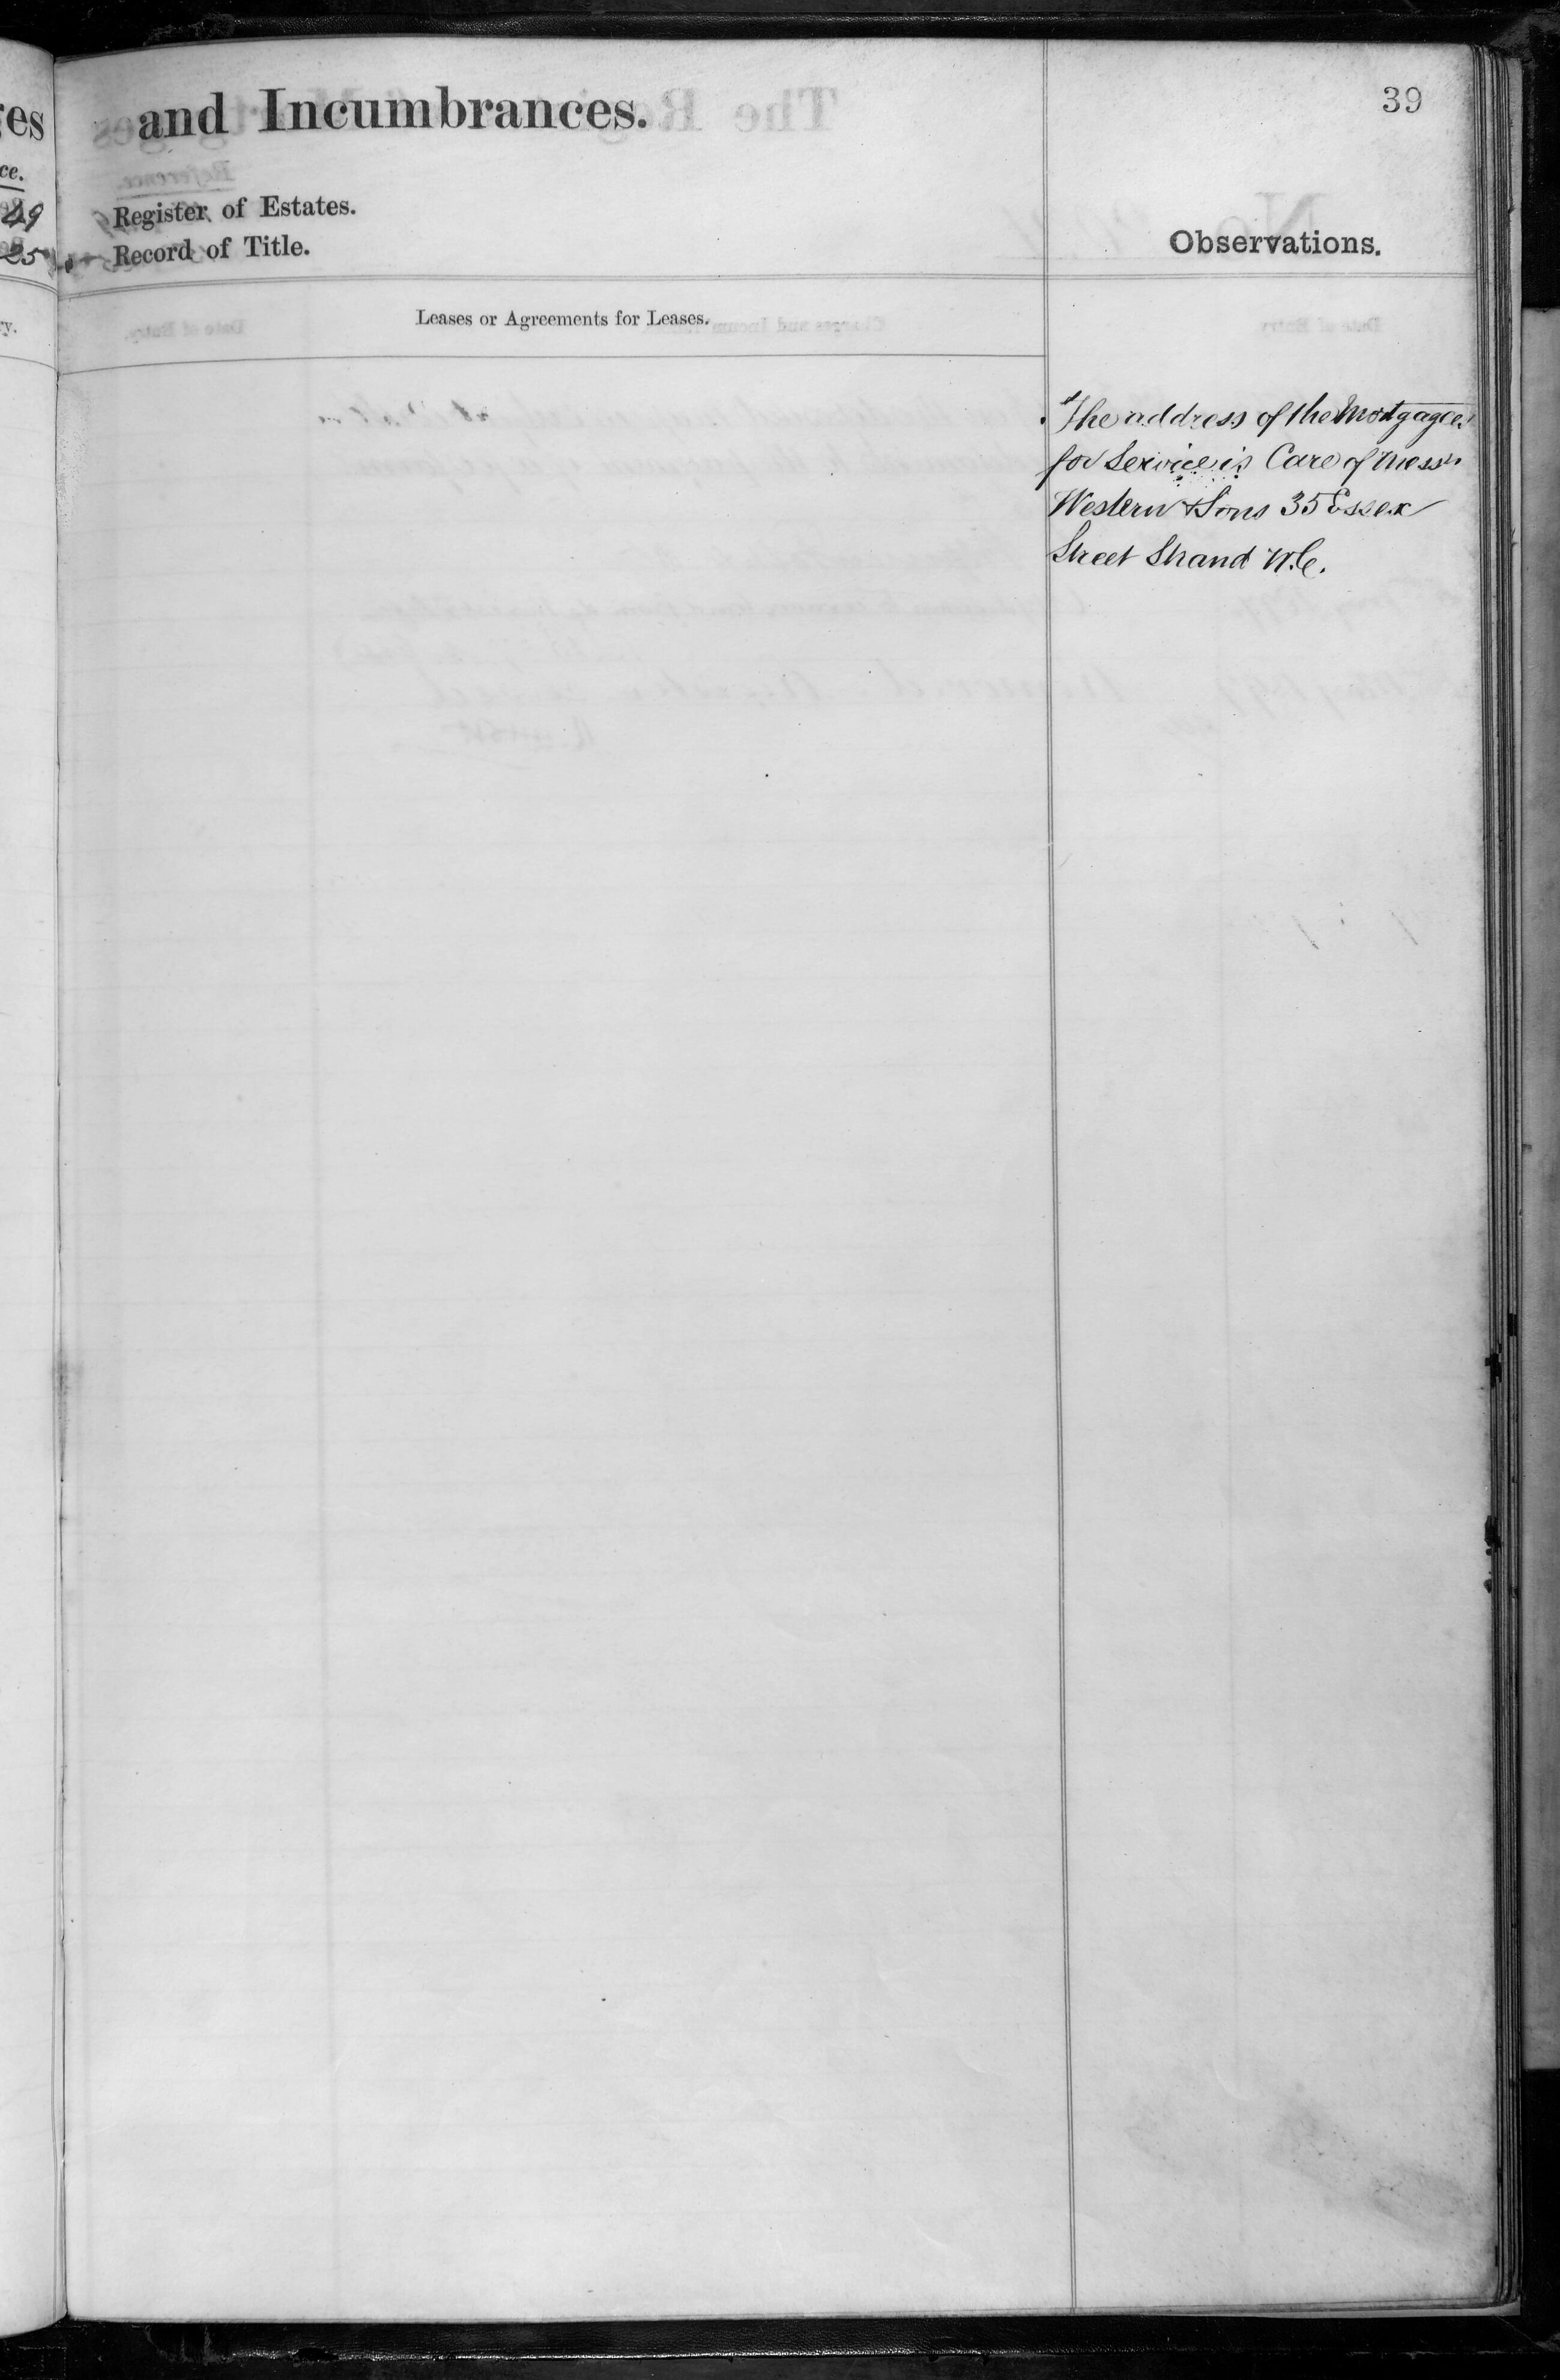 39
and Incumbrances.
Register of Estates.
Record of Title.
Observations.
Leases or Agreements for Leases.
The address of the Mortgagees
for Service is Care of Messrs
Western & Sons 35 Essex
Street Strand W.C.